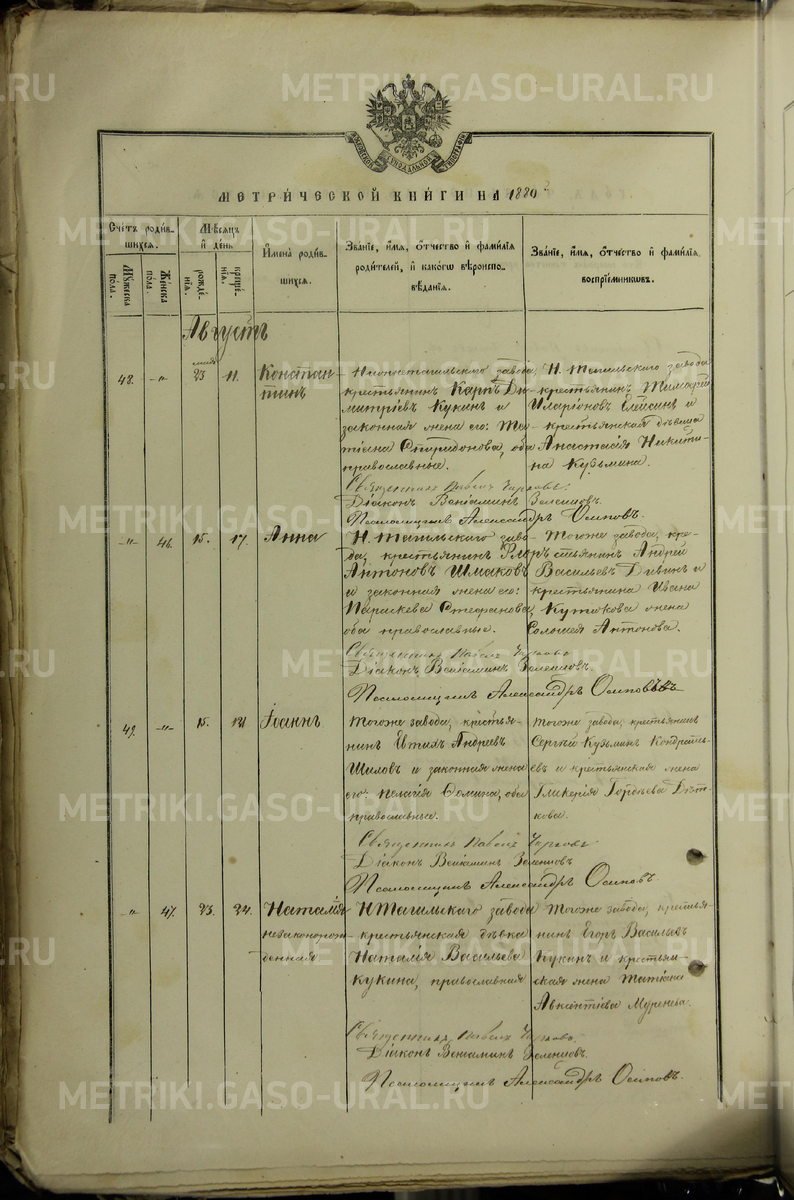 METRIKI.GASO-URAL.RU
МЕТРИ́ЧЕСКОЙ КНИ́ГИ НА 1880
Счетъ роди́в-
шихся.
Мꙋжеска
по́ла.
Же́нска
по́ла.
Мѣ́сяцъ
и҆ де́нь
рожде́-
нїя.
креще́-
нїя.
И҆мена̀ роди́в-
шихся.
Зва́нїе, и҆́мя, ѻ҆́тчество и҆ фами́лїя
роди́телей, и҆ како́гѡ вѣроиспо-
вѣ́данїя.
Зва́нїе, и҆́мя, ѻ҆́тчество и҆ фами́лїя
воспрїе́мникѡвъ.
Августъ
48. -„- 23 11. Констан-
тинъ
Нижнетагильскаго завода,
крестьянинъ Карпъ Ди-
митріевъ Кукинъ и
законная жена его: Та-
тіана Спиридонова, оба
православные.
Н. Тагильскаго завода
крестьянинъ
Иларіоновъ Елейсинъ и
крестьянская дѣвица
Анастасія Никити-
на Кузьмина.
Священникъ Павелъ
Діаконъ Веніаминъ Зеленцовъ.
Псаломщикъ Александръ Осиповъ.
-„- 46. 15. 17. Анна
Н. Тагильскаго заво-
да, крестьянинъ
Антоновъ Шмаковъ
и законная жена его:
Параскева Стефанова,
оба православные.
Тогоже завода, кре-
стьянинъ Андрей
Васильевъ Дивинъ и
крестьянина Ивана
Кутюкова жена
Соломея Антонова.
Священникъ Павелъ
Діаконъ Веніаминъ Зеленцовъ.
Псаломщикъ Александръ Осиповъ
49. -„- 15. Іоаннъ
Тогоже завода, крестья-
нинъ Андреевъ
Шиловъ и законная жена
его: Пелагія Ѳомина, оба
православные.
Тогоже завода, крестьянинъ
Сергѣй Кузьминъ Кондрать-
евъ и крестьянская жена
Гликерія Гордѣева
Священникъ Павелъ
Діаконъ Веніаминъ Зеленцовъ
Псаломщикъ Александръ Осиповъ
-„- 47. 23. 24. Наталія
незаконорож-
денная
Н Тагильскаго завода
крестьянская дѣвка
Наталія Васильева
Кукина, православная
Тогоже завода, крестья-
нинъ Егоръ Васильевъ
Кукинъ и крестьян-
ская жена Татіана
Авксентіева Муренева.
Священникъ Павелъ
Діаконъ Веніаминъ Зеленцовъ.
Псаломщикъ Александръ Осиповъ.